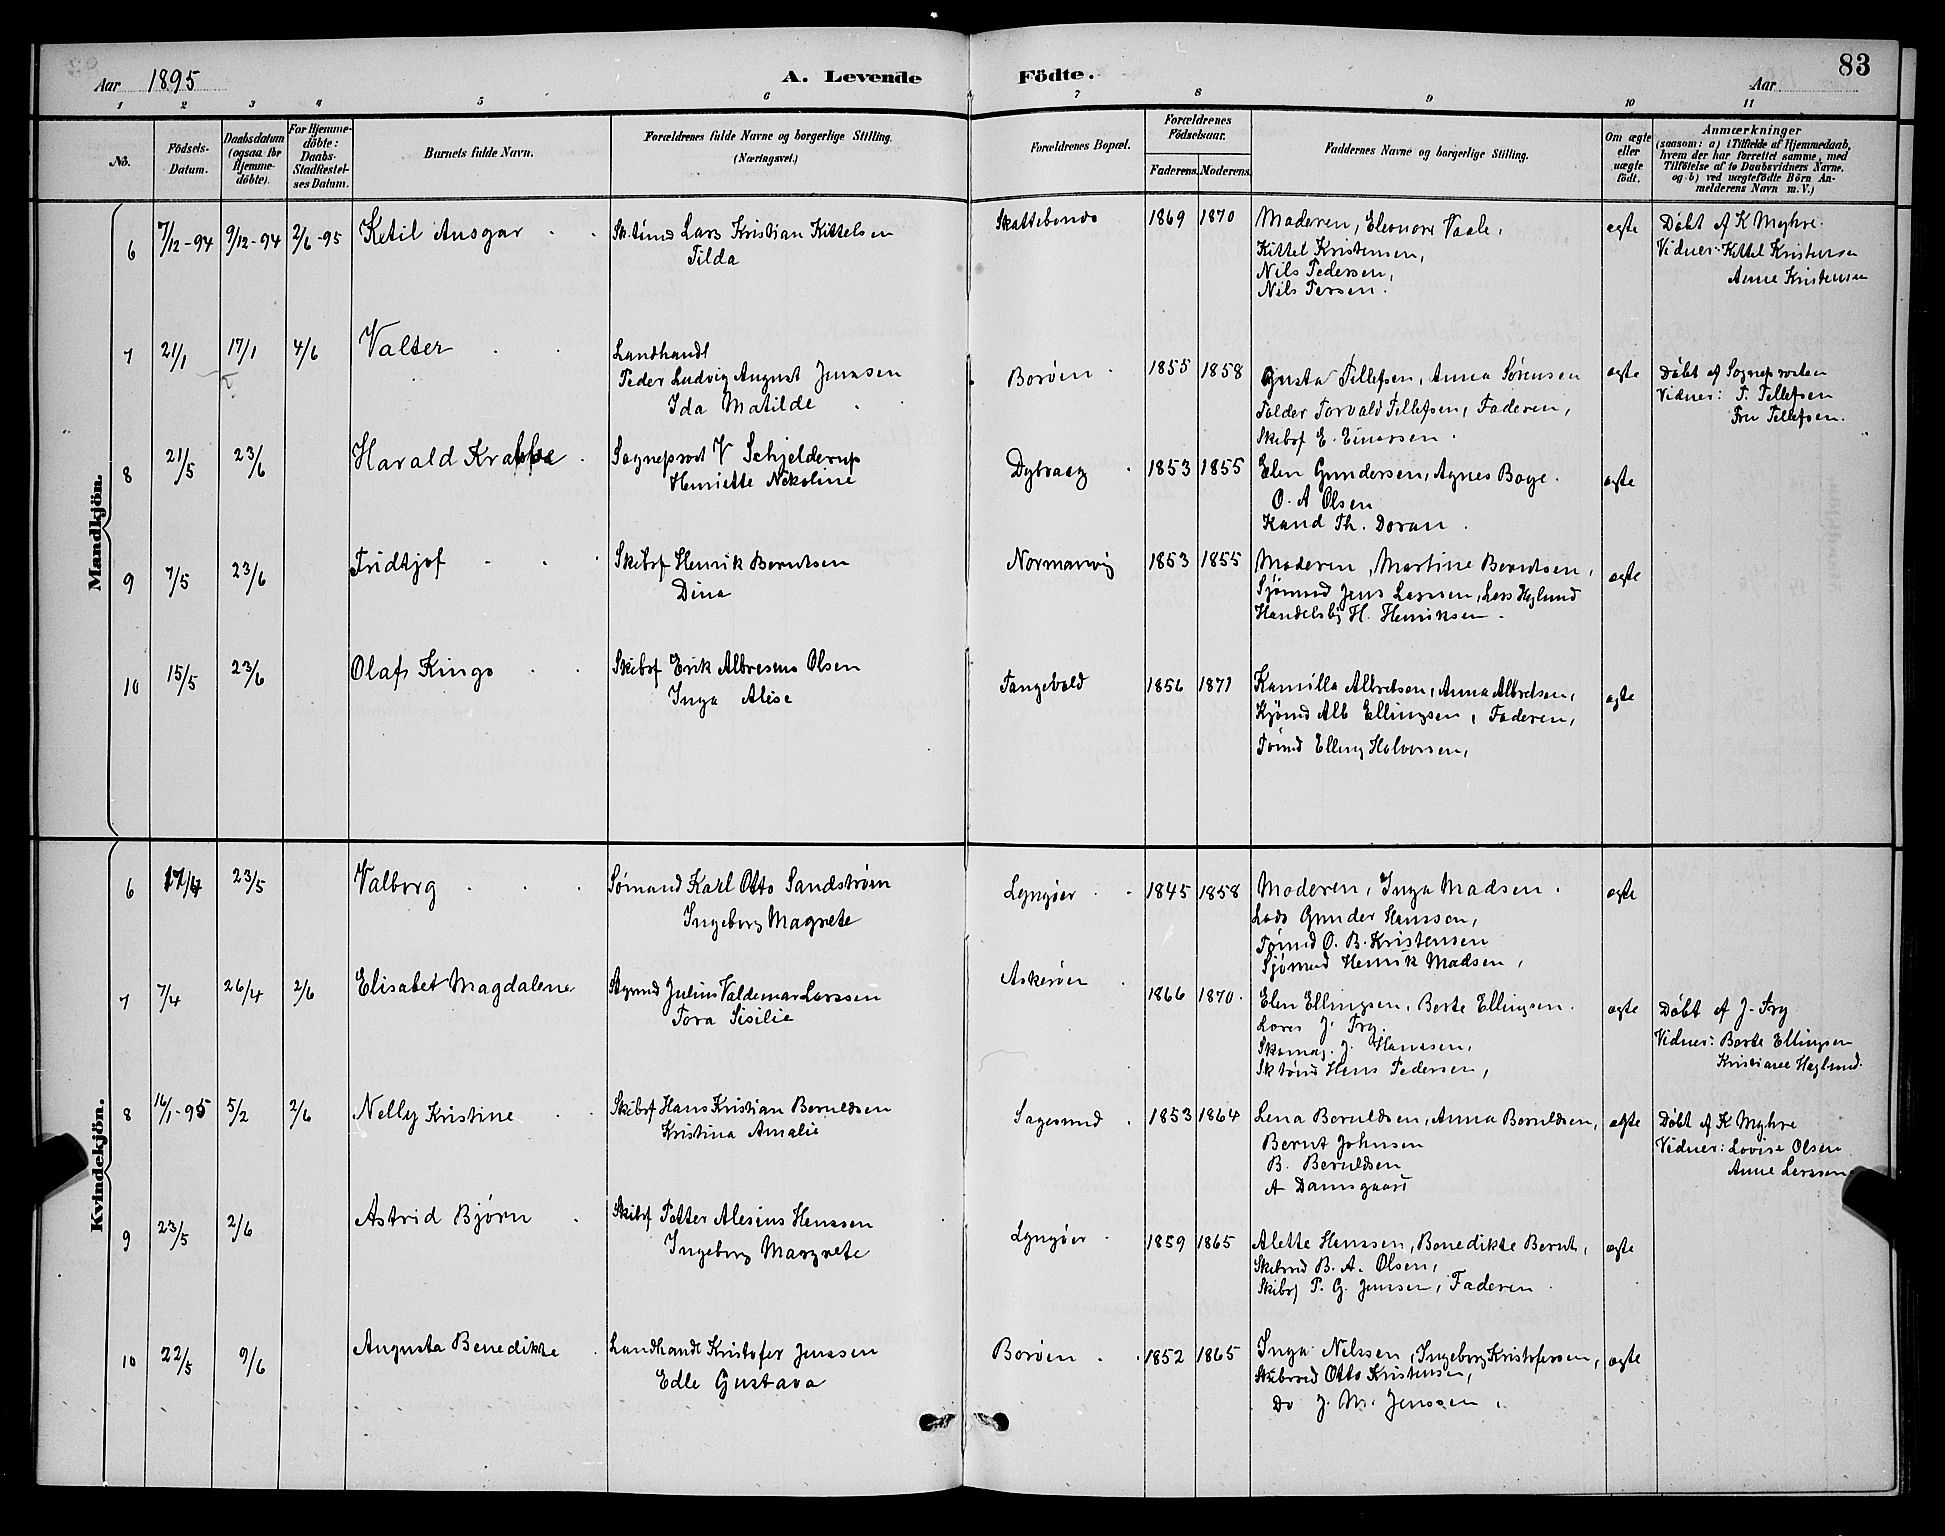 83
Aar 1895 A. Levende Födte. Aar
1 2 3 4 5 6 7 8 9 10 11
No.
Födsels-Datum.
Daabsdatum (ogsaa for Hjemme-döbte).
For Hjemme-döbte: Daabs-Stadfestel-ses Datum.
Barnets fulde Navn.
Forældrenes fulde Navne og borgerlige Stilling.
(Næringsvei.)
Forældrenes Bopæl.
Forældrenes Födselsaar.
Faderens. Moderens.
Faddernes Navne og borgerlige Stilling.
Om ægte eller uægte födt.
Anmærkninger
(saasom: a) i Tilfælde af Hjemmedaab,
hvem der har forrettet samme, med
Tilföielse af to Daabsvidners Navne.
og b) ved uægtefödte Börn An-
melderens Navn m. V.)
Mandkjön.
6 7/12-94 9/12-94 2/6-95 Ketil Ansgar Lars Kristian Kittelsen 1869 1870 Moderen, Eleonore Vaale, ægte Døbt af K Myhre.
Tilda Kittel Kristensen, Vidner: Kittel Kristensen
Nils Pedersen, Anne Kristensen
Nils Persen.
7 21/1 17/1 4/6 Valter Landhandl
Peder Ludvig August Jenssen Borøen 1855 1858 Gusta Tellefsen, Anna Sørensen ægte Døbt af Sognepresten
Ida Matilde Tolder Torvald Tellefsen, Faderen, Vidner: T. Tellefsen
Skibsf E. Einersen. Fru Tellefsen.
8 21/5 23/6 Harald Krabbe Sogneprest V Schjelderup Dybvaag 1853 1855 Elen Gundersen, Agnes Boye. ægte
Henriette Nikoline O. A Olsen
Kand Th. Doran.
9 7/5 23/6 Fridtjof Skibsf Henrik Berntsen Normanvig 1853 1855 Moderen, Martine Berntsen, ægte
Dina Sjømand Jens Larssen, Lars Heglund
Handelsbtj H. Henriksen.
10 15/5 23/6 Olaf Kingo Skibsf Erik Olsen 1856 1871 Kamilla Albretsen, Anna Albretsen, ægte
Inga Alise Alb Ellingsen, Faderen,
Tømd Elling Halvorsen,
Kvindekjön.
6 23/5 Valborg Sømand Karl Otto Sandstrøm Lyngøer 1845 1858 Moderen, Inga Madsen. ægte
Ingeborg Magrete Lods Gunder Hanssen,
Tømd O. B. Kristensen
Sjømd Henrik Madsen,
7 7/4 26/4 2/6 Elisabet Magdalene Julius Valdemar Larssen Askerøen 1866 1870. Elen Ellingsen, Berte Ellingsen. ægte Døbt af J. Fry
Tora Sisilie J. Fry. Vidner: Berte Ellingsen
Skomag. J. Hanssen, Kristiane Heglund.
Hans Pedersen,
8 16/1-95 5/2 2/6 Nelly Kristine Skibsf Hans Kristian Beruldsen Sagesund 1853 1864 Lena Beruldsen, Anna Beruldsen, ægte Døbt af K Myhre
Kristina Amalie Bernt Johnsen Vidner: Lovise Olsen
B. Beruldsen Anne Larssen
A Damsgaard
9 23/5 2/6 Astrid Bjørn Skibsf Petter Alesius Hanssen Lyngøer 1859 1865 Alette Hanssen, Benedikte Bernt, ægte
Ingeborg Margrete Skibsred B. A. Olsen,
Skibsf P. G. Jenssen, Faderen
10 22/5 9/6 Augusta Benedikte Landhandl Kristofer Jenssen Borøen 1852 1865 Inga Nilssen, Ingeborg Kristofersen, ægte
Edle Gustava Skibsred Otto Kristensen,
Do J. M. Jenssen,